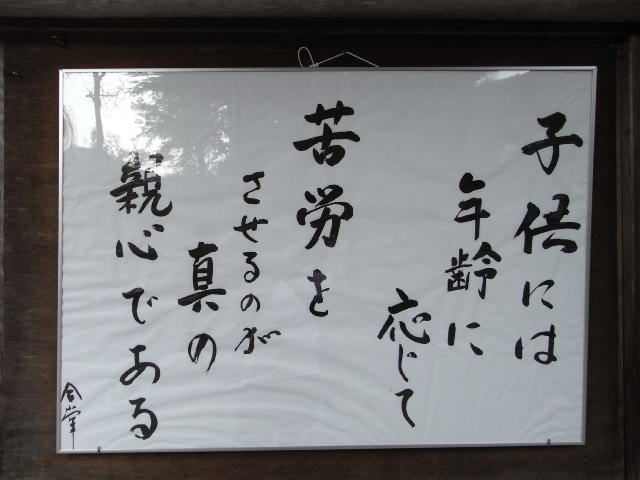 子供には
年齢に
応じて
苦労を
させるのが
真の
親心である
合掌